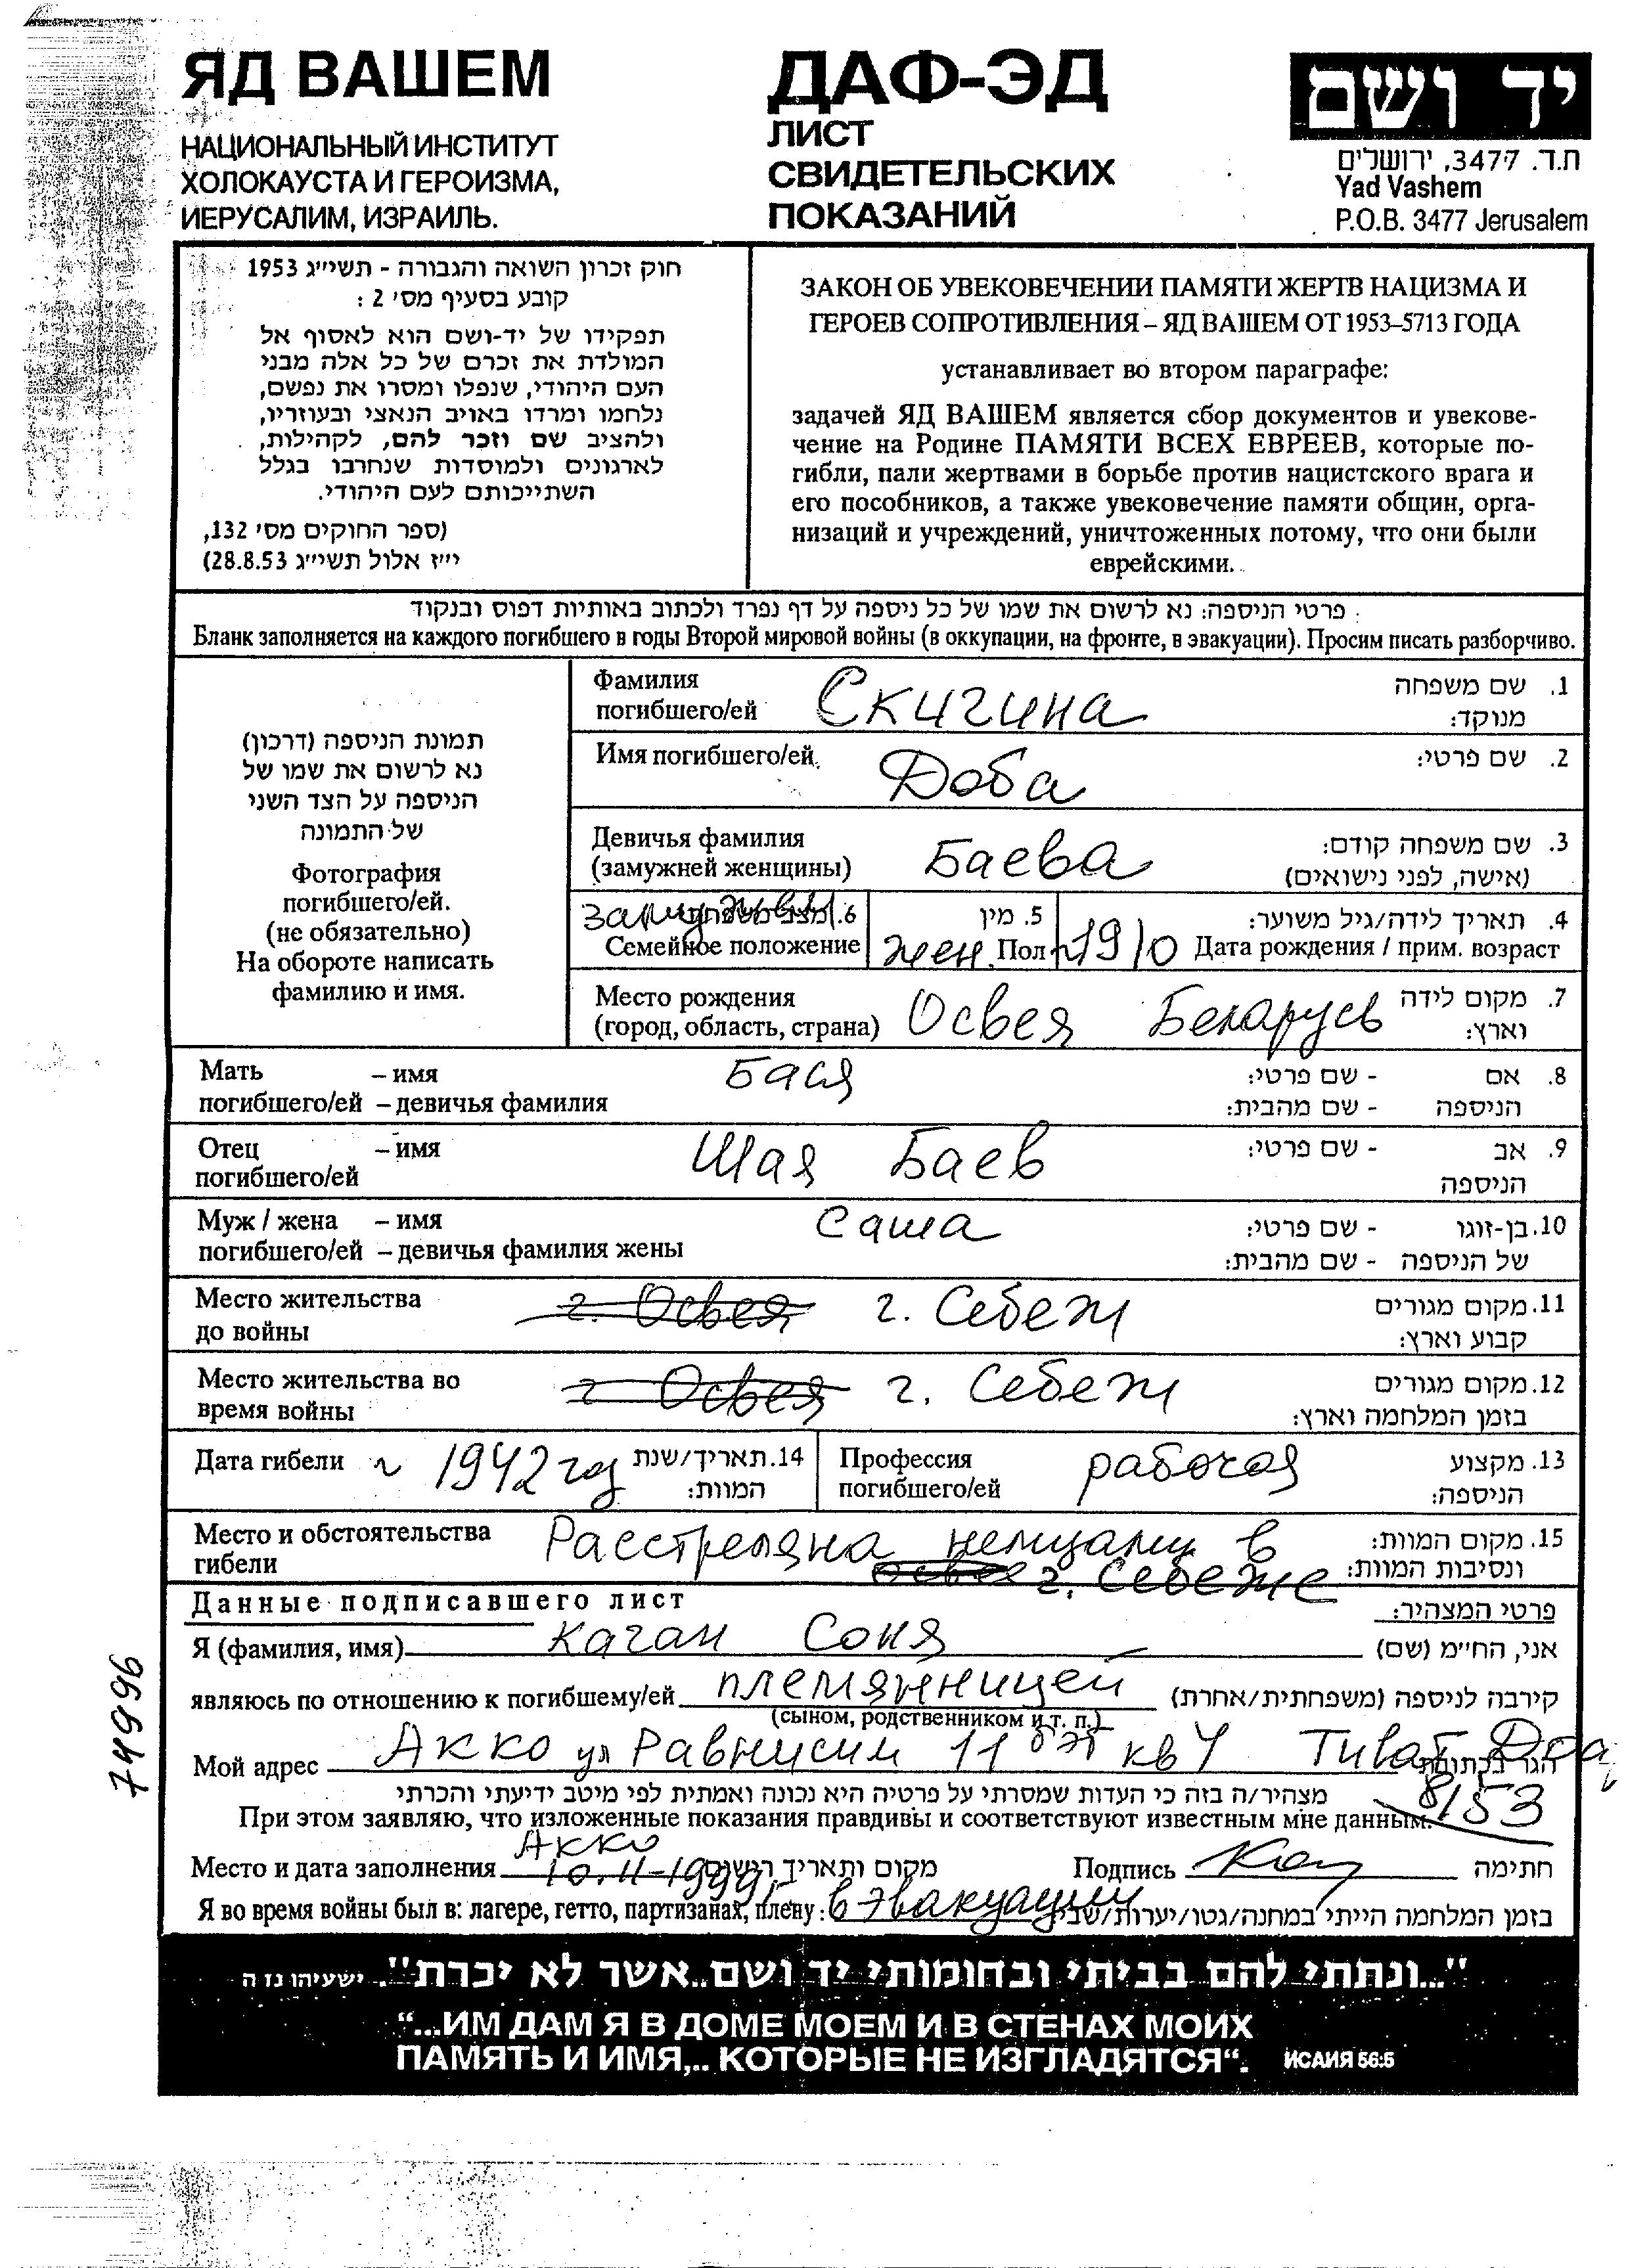 ЯД ВАШЕМ
НАЦИОНАЛЬНЫЙ ИНСТИТУТ
ХОЛОКАУСТА И ГЕРОИЗМА,
ИЕРУСАЛИМ, ИЗРАИЛЬ.
ДАФ-ЭД
ЛИСТ
СВИДЕТЕЛЬСКИХ
ПОКАЗАНИЙ
יד ושם
ת.ד. 3477, ירושלים
Yad Vashem
P.O.B. 3477 Jerusalem
חוק זכרון השואה והגבורה - תשי״ג 1953
קובע בסעיף מס׳ 2 :
תפקידו של יד-ושם הוא לאסוף אל
המולדת את זכרם של כל אלה מבני
העם היהודי, שנפלו ומסרו את נפשם,
נלחמו ומרדו באויב הנאצי ובעוזריו,
ולהציב שם וזכר להם, לקהילות,
לארגונים ולמוסדות שנחרבו בגלל
השתייכותם לעם היהודי.
(ספר החוקים מס׳ 132,
י״ז אלול תשי״ג 28.8.53)
ЗАКОН ОБ УВЕКОВЕЧЕНИИ ПАМЯТИ ЖЕРТВ НАЦИЗМА И
ГЕРОЕВ СОПРОТИВЛЕНИЯ – ЯД ВАШЕМ ОТ 1953–5713 ГОДА
устанавливает во втором параграфе:
задачей ЯД ВАШЕМ является сбор документов и увекове-
чение на Родине ПАМЯТИ ВСЕХ ЕВРЕЕВ, которые по-
гибли, пали жертвами в борьбе против нацистского врага и
его пособников, а также увековечение памяти общин, орга-
низаций и учреждений, уничтоженных потому, что они были
еврейскими.
פרטי הניספה: נא לרשום את שמו של כל ניספה על דף נפרד ולכתוב באותיות דפוס ובנקוד
Бланк заполняется на каждого погибшего в годы Второй мировой войны (в оккупации, на фронте, в эвакуации). Просим писать разборчиво.
תמונת הניספה (דרכון)
נא לרשום את שמו של
הניספה על הצד השני
של התמונה
Фотография
погибшего/ей.
(не обязательно)
На обороте написать
фамилию и имя.
Фамилия погибшего/ей Скигина 1. שם משפחה מנוקד:
Имя погибшего/ей Доба 2. שם פרטי:
Девичья фамилия (замужней женщины) Баева 3. שם משפחה קודם: (אישה, לפני נישואים)
замужем 6. מצב משפחתי Семейное положение
жен. 5. מין Пол
~1910 4. תאריך לידה/גיל משוער: Дата рождения / прим. возраст
Место рождения (город, область, страна) Освея Беларусь 7. מקום לידה וארץ:
Мать – имя Бася 8. אם - שם פרטי:
погибшего/ей – девичья фамилия הניספה - שם מהבית:
Отец – имя Шая Баев 9. אב - שם פרטי:
погибшего/ей הניספה
Муж / жена – имя Саша 10. בן-זוגו - שם פרטי:
погибшего/ей – девичья фамилия жены של הניספה - שם מהבית:
Место жительства до войны г. Освея г. Себеж 11. מקום מגורים קבוע וארץ:
Место жительства во время войны г Освея г. Себеж 12. מקום מגורים בזמן המלחמה וארץ:
Дата гибели ~ 1942 год 14. תאריך/שנת המוות:
Профессия погибшего/ей рабочая 13. מקצוע הניספה:
Место и обстоятельства Расстреляна немцами в 15. מקום המוות:
гибели Освее г. Себеже ונסיבות המוות:
Данные подписавшего лист פרטי המצהיר:
Я (фамилия, имя) Каган Соня אני, החי״מ (שם)
являюсь по отношению к погибшему/ей племянницей קירבה לניספה (משפחתית/אחרת)
(сыном, родственником и т. п.)
Мой адрес Акко ул Равнусим 11 кв 4
8/53
מצהיר/ה בזה כי העדות שמסרתי על פרטיה היא נכונה ואמתית לפי מיטב ידיעתי והכרתי
При этом заявляю, что изложенные показания правдивы и соответствуют известным мне данным.
Акко
Место и дата заполнения 10.11-1999г. מקום ותאריך רישום Подпись חתימה
Я во время войны был в: лагере, гетто, партизанах, плену: в эвакуации בזמן המלחמה הייתי במחנה/גטו/יערות/שבי
74996
"...ונתתי להם בביתי ובחומותי יד ושם..אשר לא יכרת". ישעיהו נז ה
“...ИМ ДАМ Я В ДОМЕ МОЕМ И В СТЕНАХ МОИХ
ПАМЯТЬ И ИМЯ,.. КОТОРЫЕ НЕ ИЗГЛАДЯТСЯ“. ИСАИЯ 56:5